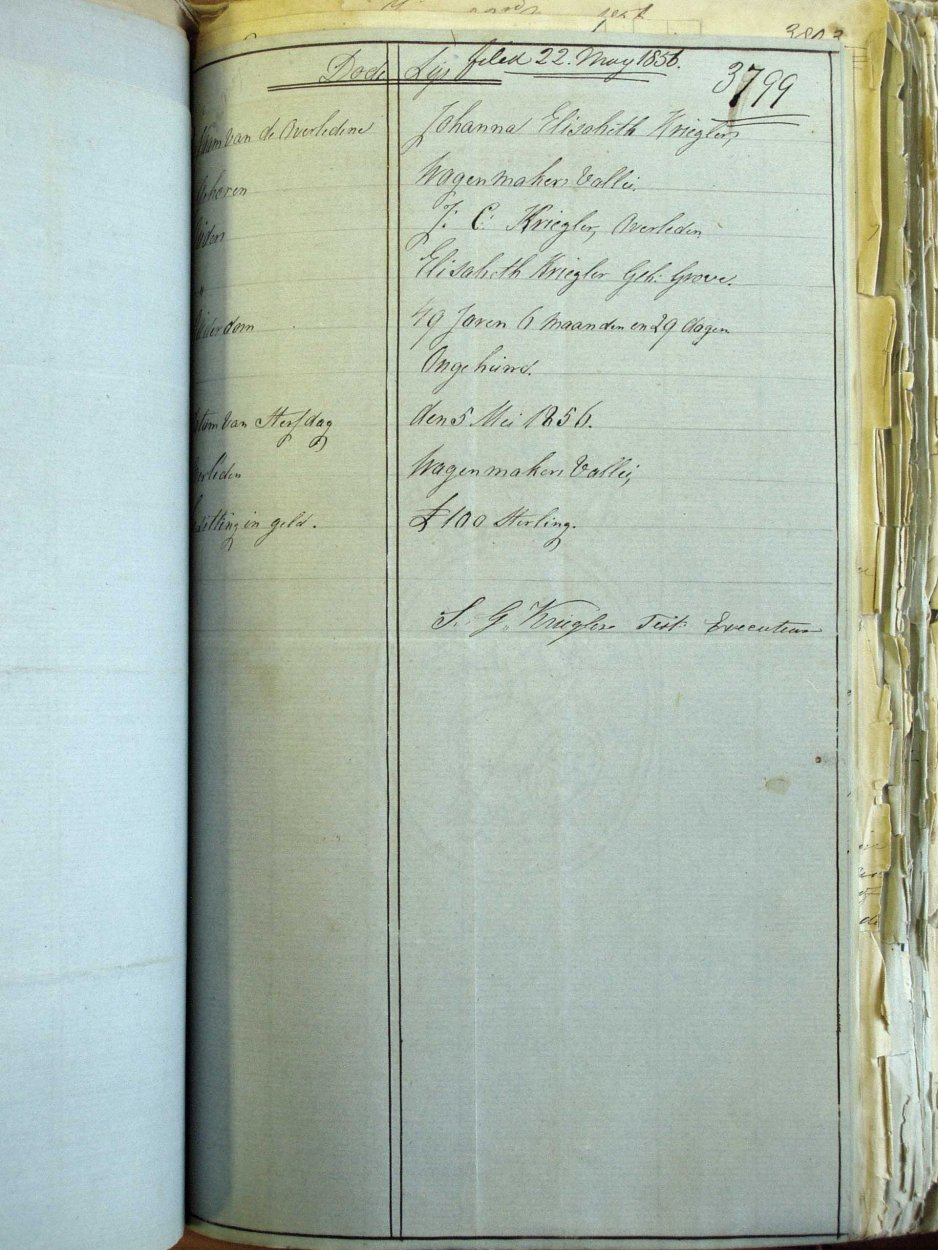 Dode Lys filed 22. May 1856. 3799
Naam van de Overledene Johanna Elisabeth Kriegler,
Geboren Wagenmakers Vallei,
J: C: Kriegler, Overleden
Elisabeth Kriegler Geb: Grove.
Ouderdom 49 Jaren 6 maanden en 29 dagen
Ongehuwd.
Datum van Sterfdag den 5 Mei 1856.
Overleden Wagenmakers Vallei,
Bezitting in geld. £ 100 Sterling.
S. G. Kriegler Test: Executeur